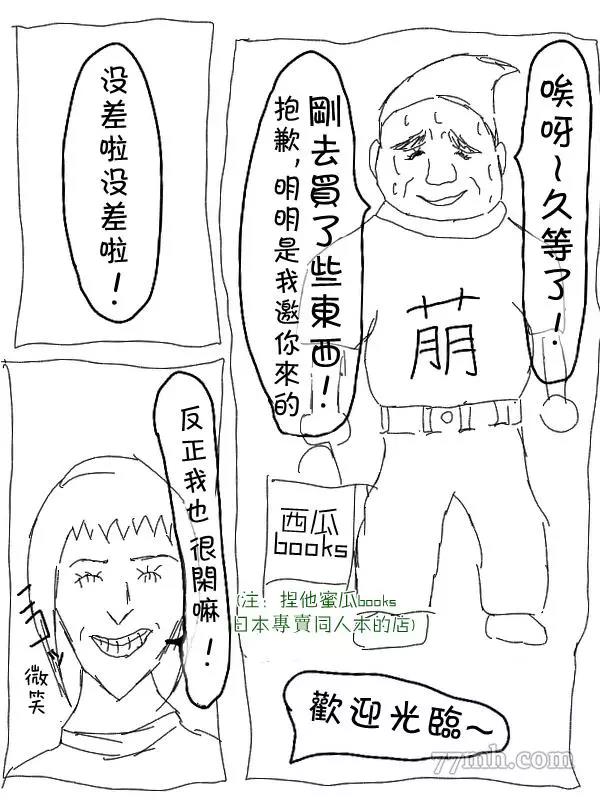 唉呀～久等了！
剛去買了些東西！
抱歉，明明是我邀你來的
萠
西瓜
books
(注：捏他蜜瓜books
日本專賣同人本的店)
歡迎光臨～
没差啦没差啦！
反正我也很閑嘛！
ニコッ
微笑
77mh.com